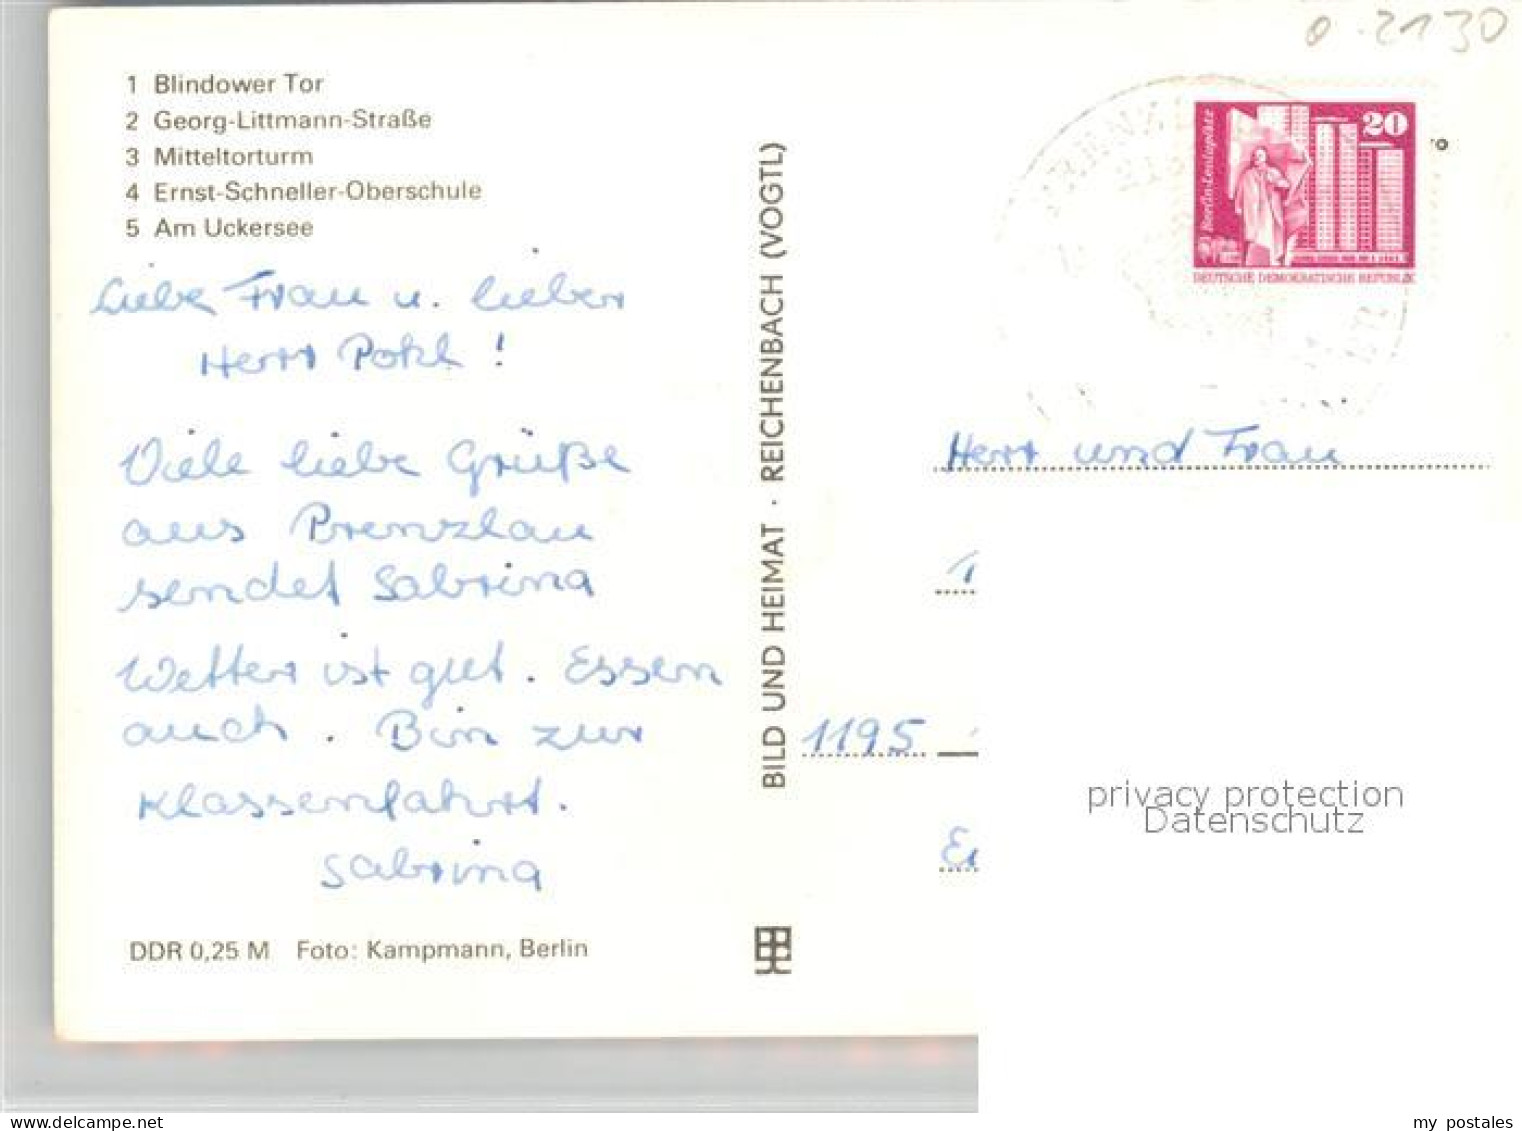 o-2130
1 Blindower Tor
2 Georg-Littmann-Straße
3 Mitteltorturm
4 Ernst-Schneller-Oberschule
5 Am Uckersee
Liebe Frau u. lieber
Herr Pohl !
Viele liebe Grüße
aus Prenzlau
sendet Sabrina
Wetter ist gut. Essen
auch. Bin zur
Klassenfahrt.
Sabrina
DDR 0,25 M Foto: Kampmann, Berlin
BILD UND HEIMAT · REICHENBACH (VOGTL)
Berlin·Leninplatz
20
DEUTSCHE DEMOKRATISCHE REPUBLIK
Herr und Frau
1195
privacy protection
Datenschutz
my postales